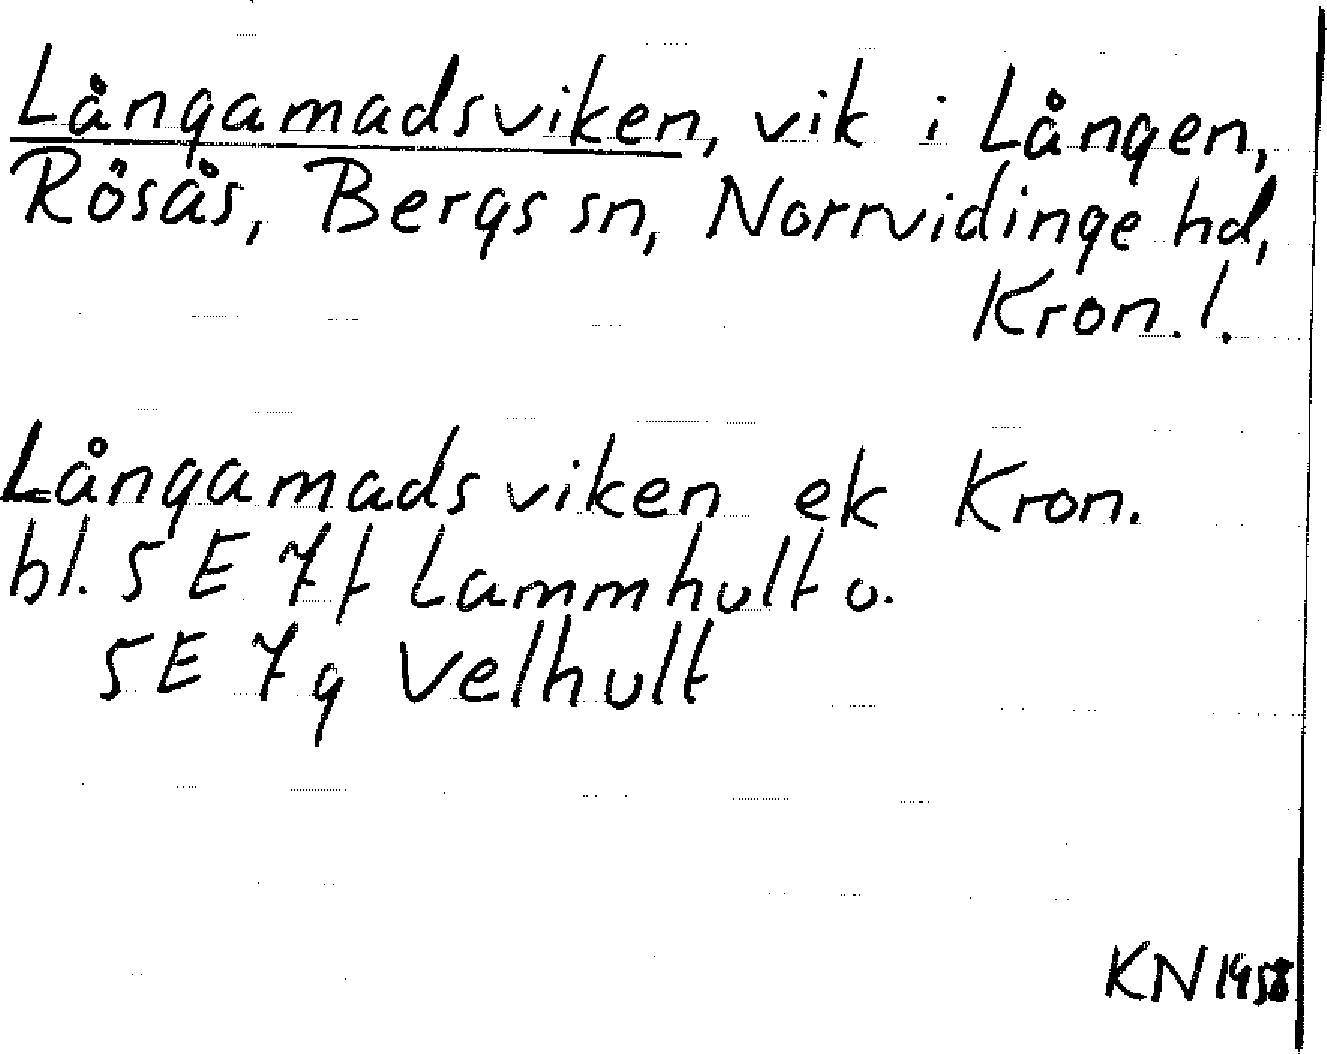 Långamadsviken, vik i Lången,
Rösås, Bergs sn, Norrvidinge hd,
Kron. l.
Långamadsviken ek Kron.
bl. 5 E 7 f Lammhult o.
5 E 7 g Velhult
KN 1958